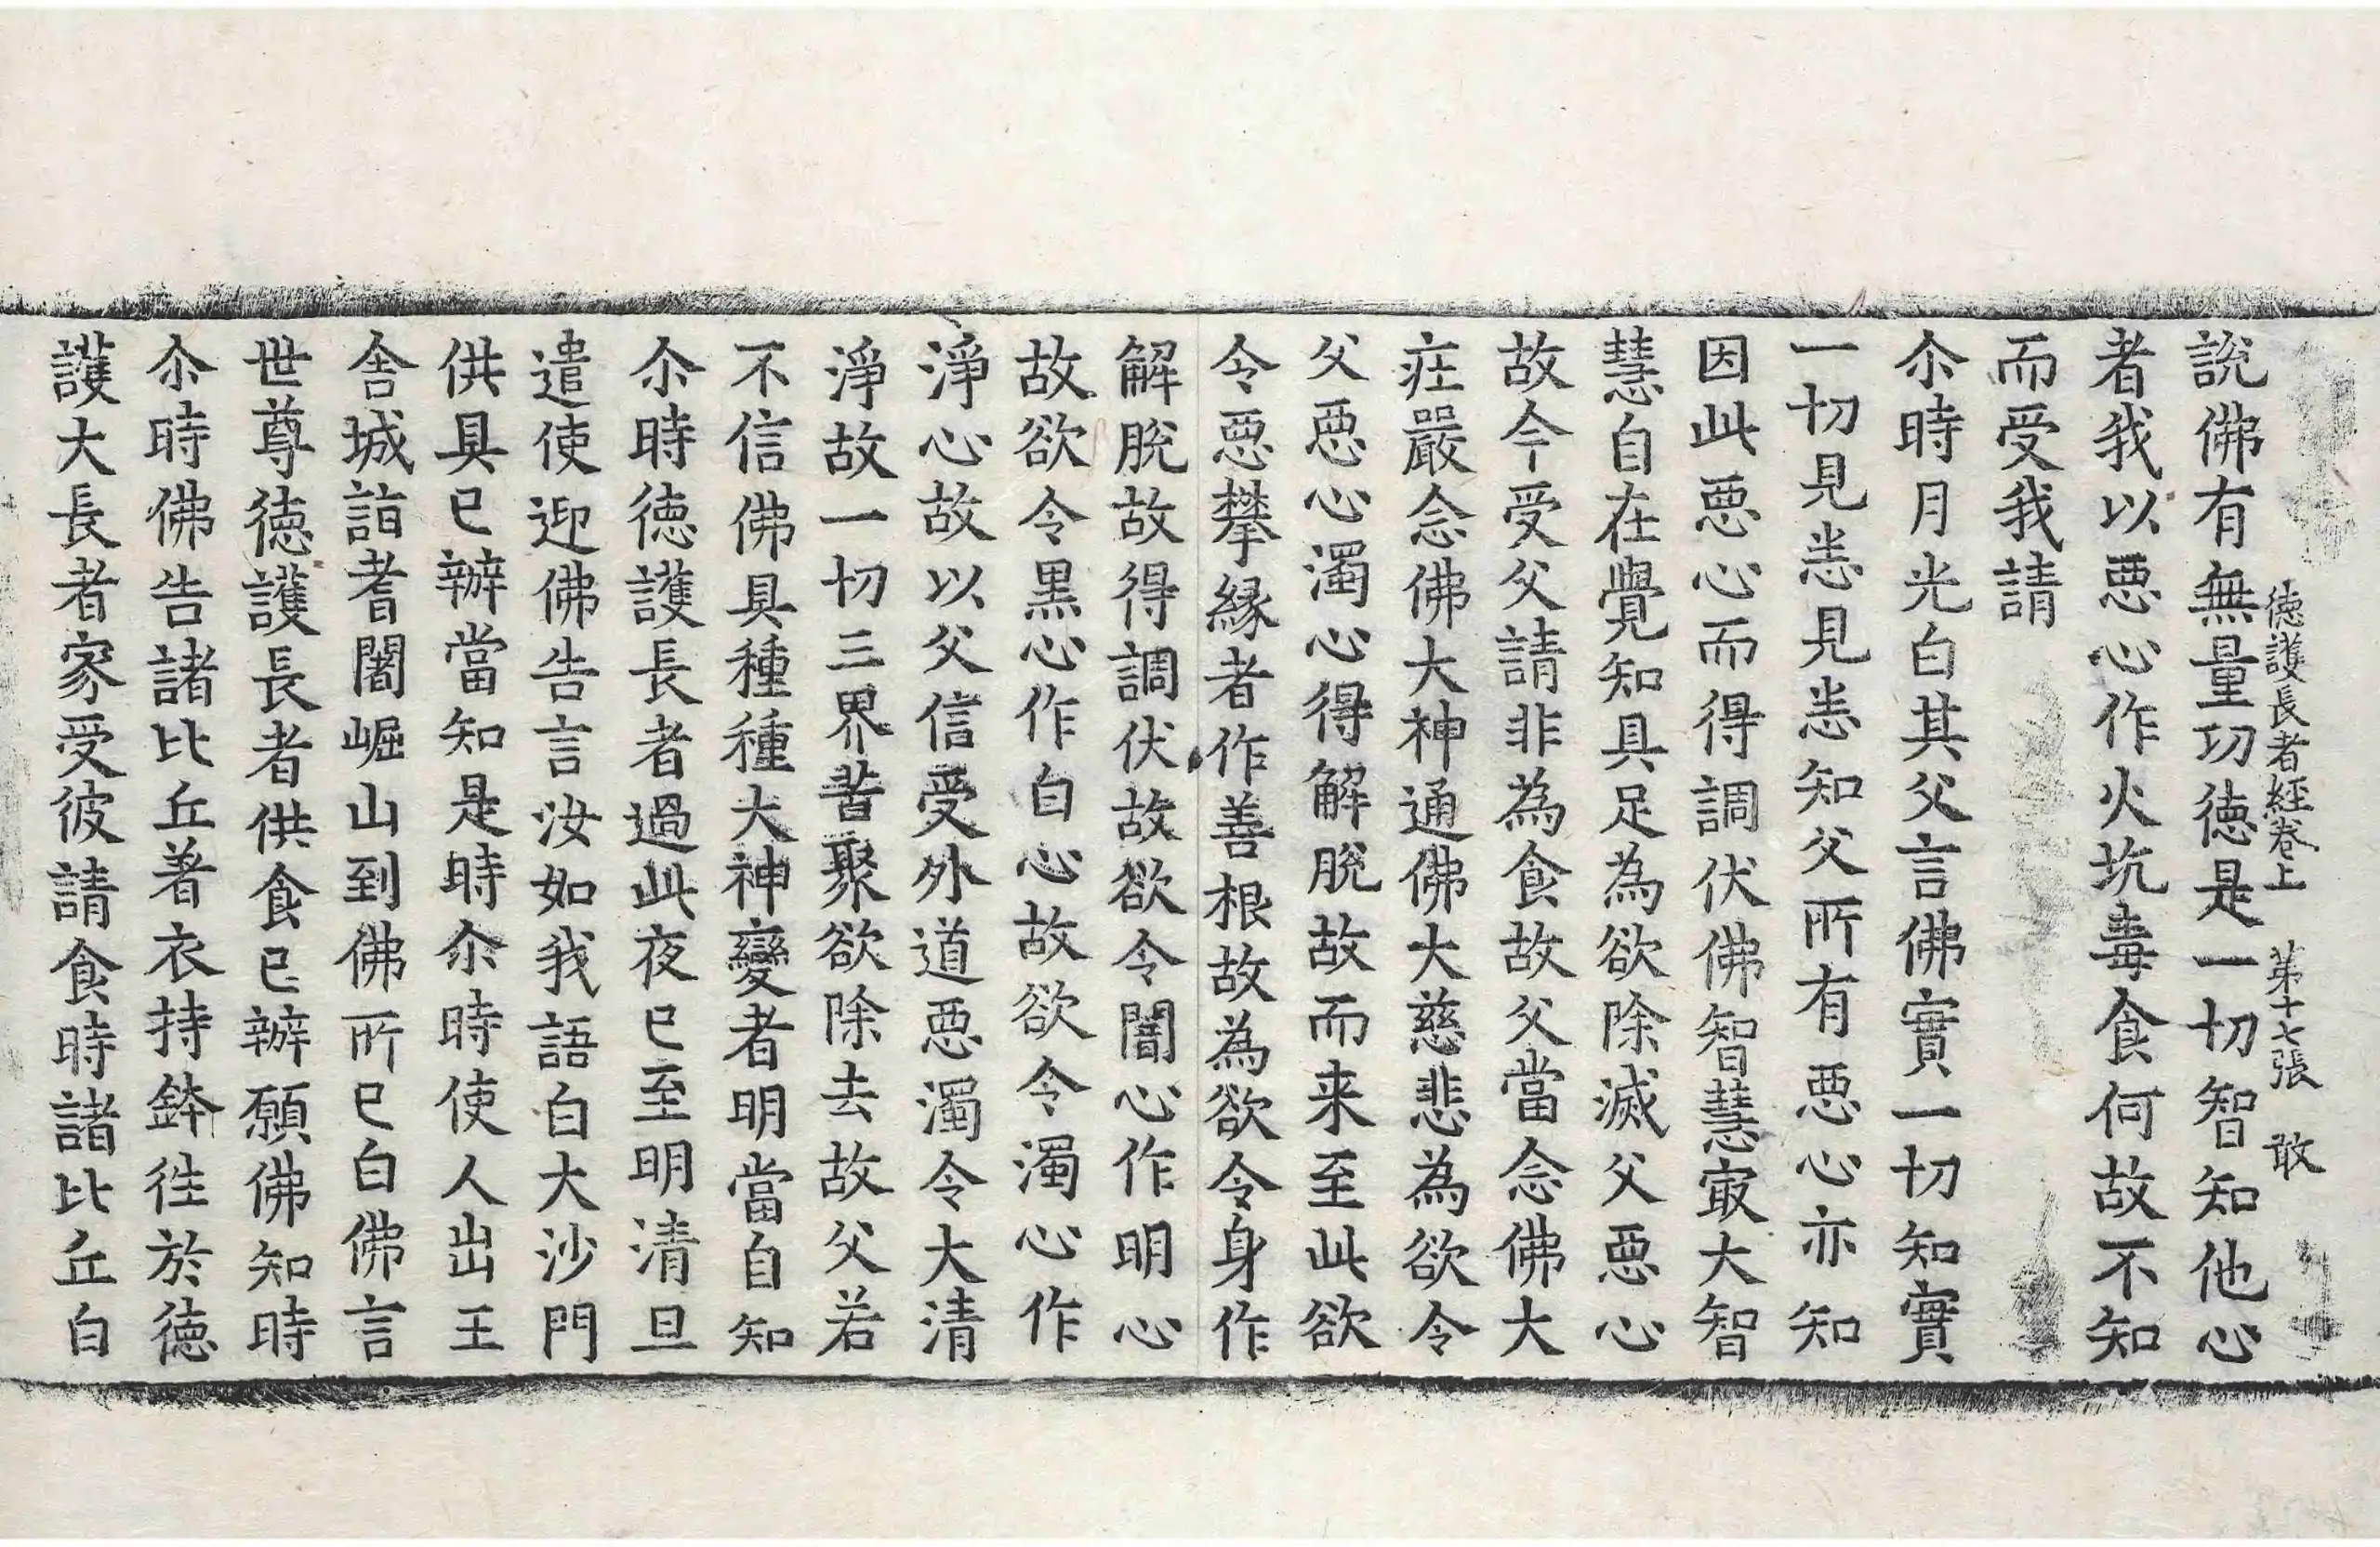 德護長者經卷上 第十七張 敢
說佛有無量功德是一切智知他心
者我以惡心作火坑毒食何故不知
而受我請
尒時月光白其父言佛實一切知實
一切見悉見悉知父所有惡心亦知
因此惡心而得調伏佛智慧㝡大智
慧自在覺知具足為欲除滅父惡心
故今受父請非為食故父當念佛大
莊嚴念佛大神通佛大慈悲為欲令
父惡心濁心得解脫故而来至此欲
令惡攀緣者作善根故為欲令身作
解脫故得調伏故欲令闇心作明心
故欲令黑心作白心故欲令濁心作
淨心故以父信受外道惡濁令大清
淨故一切三界苦聚欲除去故父若
不信佛具種種大神變者明當自知
尒時德護長者過此夜已至明清旦
遣使迎佛告言汝如我語白大沙門
供具已辦當知是時尒時使人出王
舍城詣耆闍崛山到佛所已白佛言
世尊德護長者供食已辦願佛知時
尒時佛告諸比丘著衣持鉢往於德
護大長者家受彼請食時諸比丘白